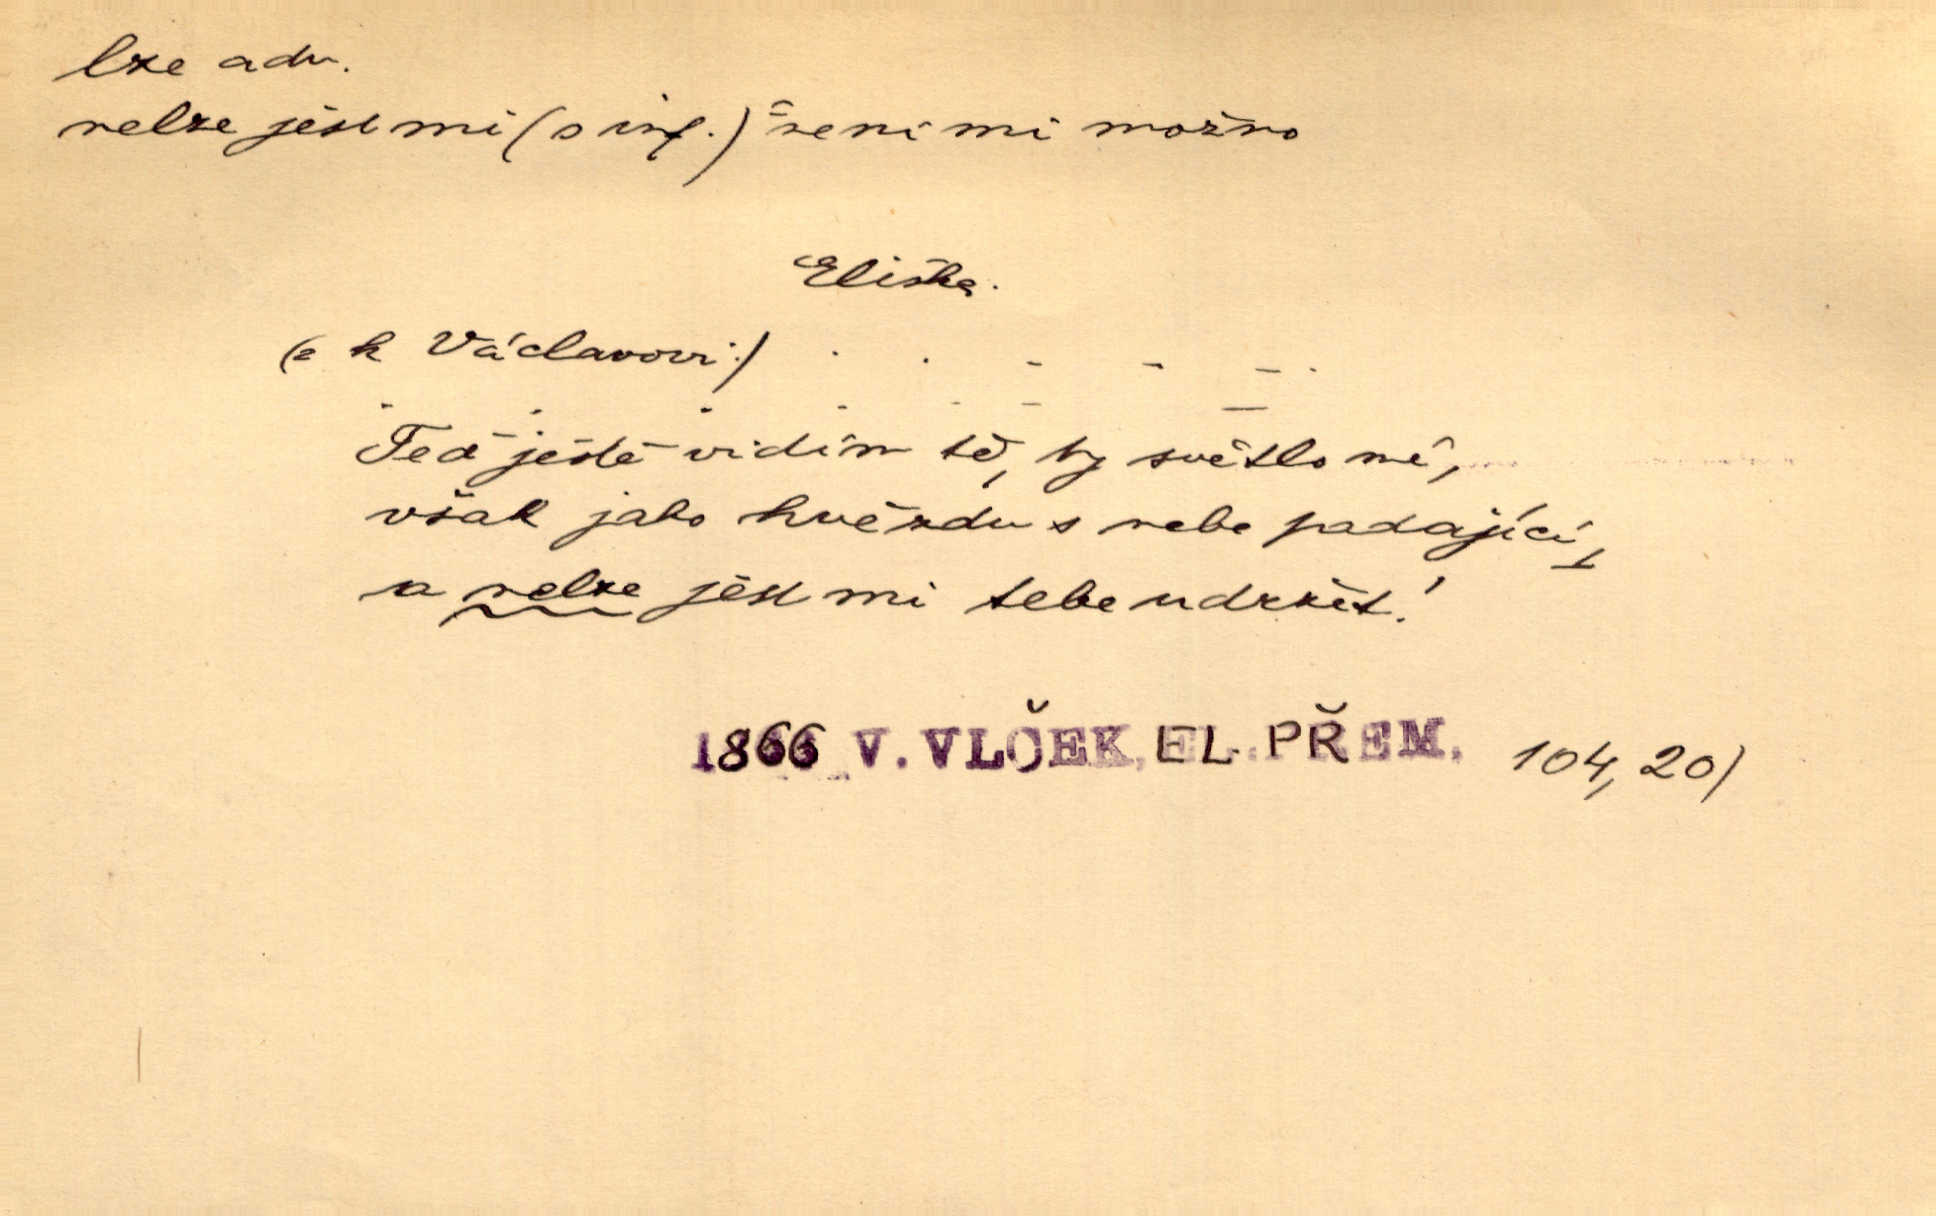 lze adv.
nelze jest mi (s inf.) = není mi možno
Eliška.
(: k Václavovi :) . . - - - .
. . . . - - -
Teď ještě vidím tě, ty světlo mé,
však jako hvězdu s nebe padající,
a nelze jest mi tebe udržet!
1866 V. VLČEK, EL. PŘEM. 104, 20)